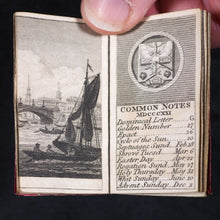 COMMON NOTES
MDCCCXXI
Dominical Letter G
Golden Number 17
Epact 26
Cycle of the Sun 10
Septuages: Sund. Feb 18
Shrove Tuesd. Mar 6
Easter Day Apr 22
Rogation Sund. May 27
Holy Thursday May 31
Whit Sunday June 10
Advent Sunday Dec. 2